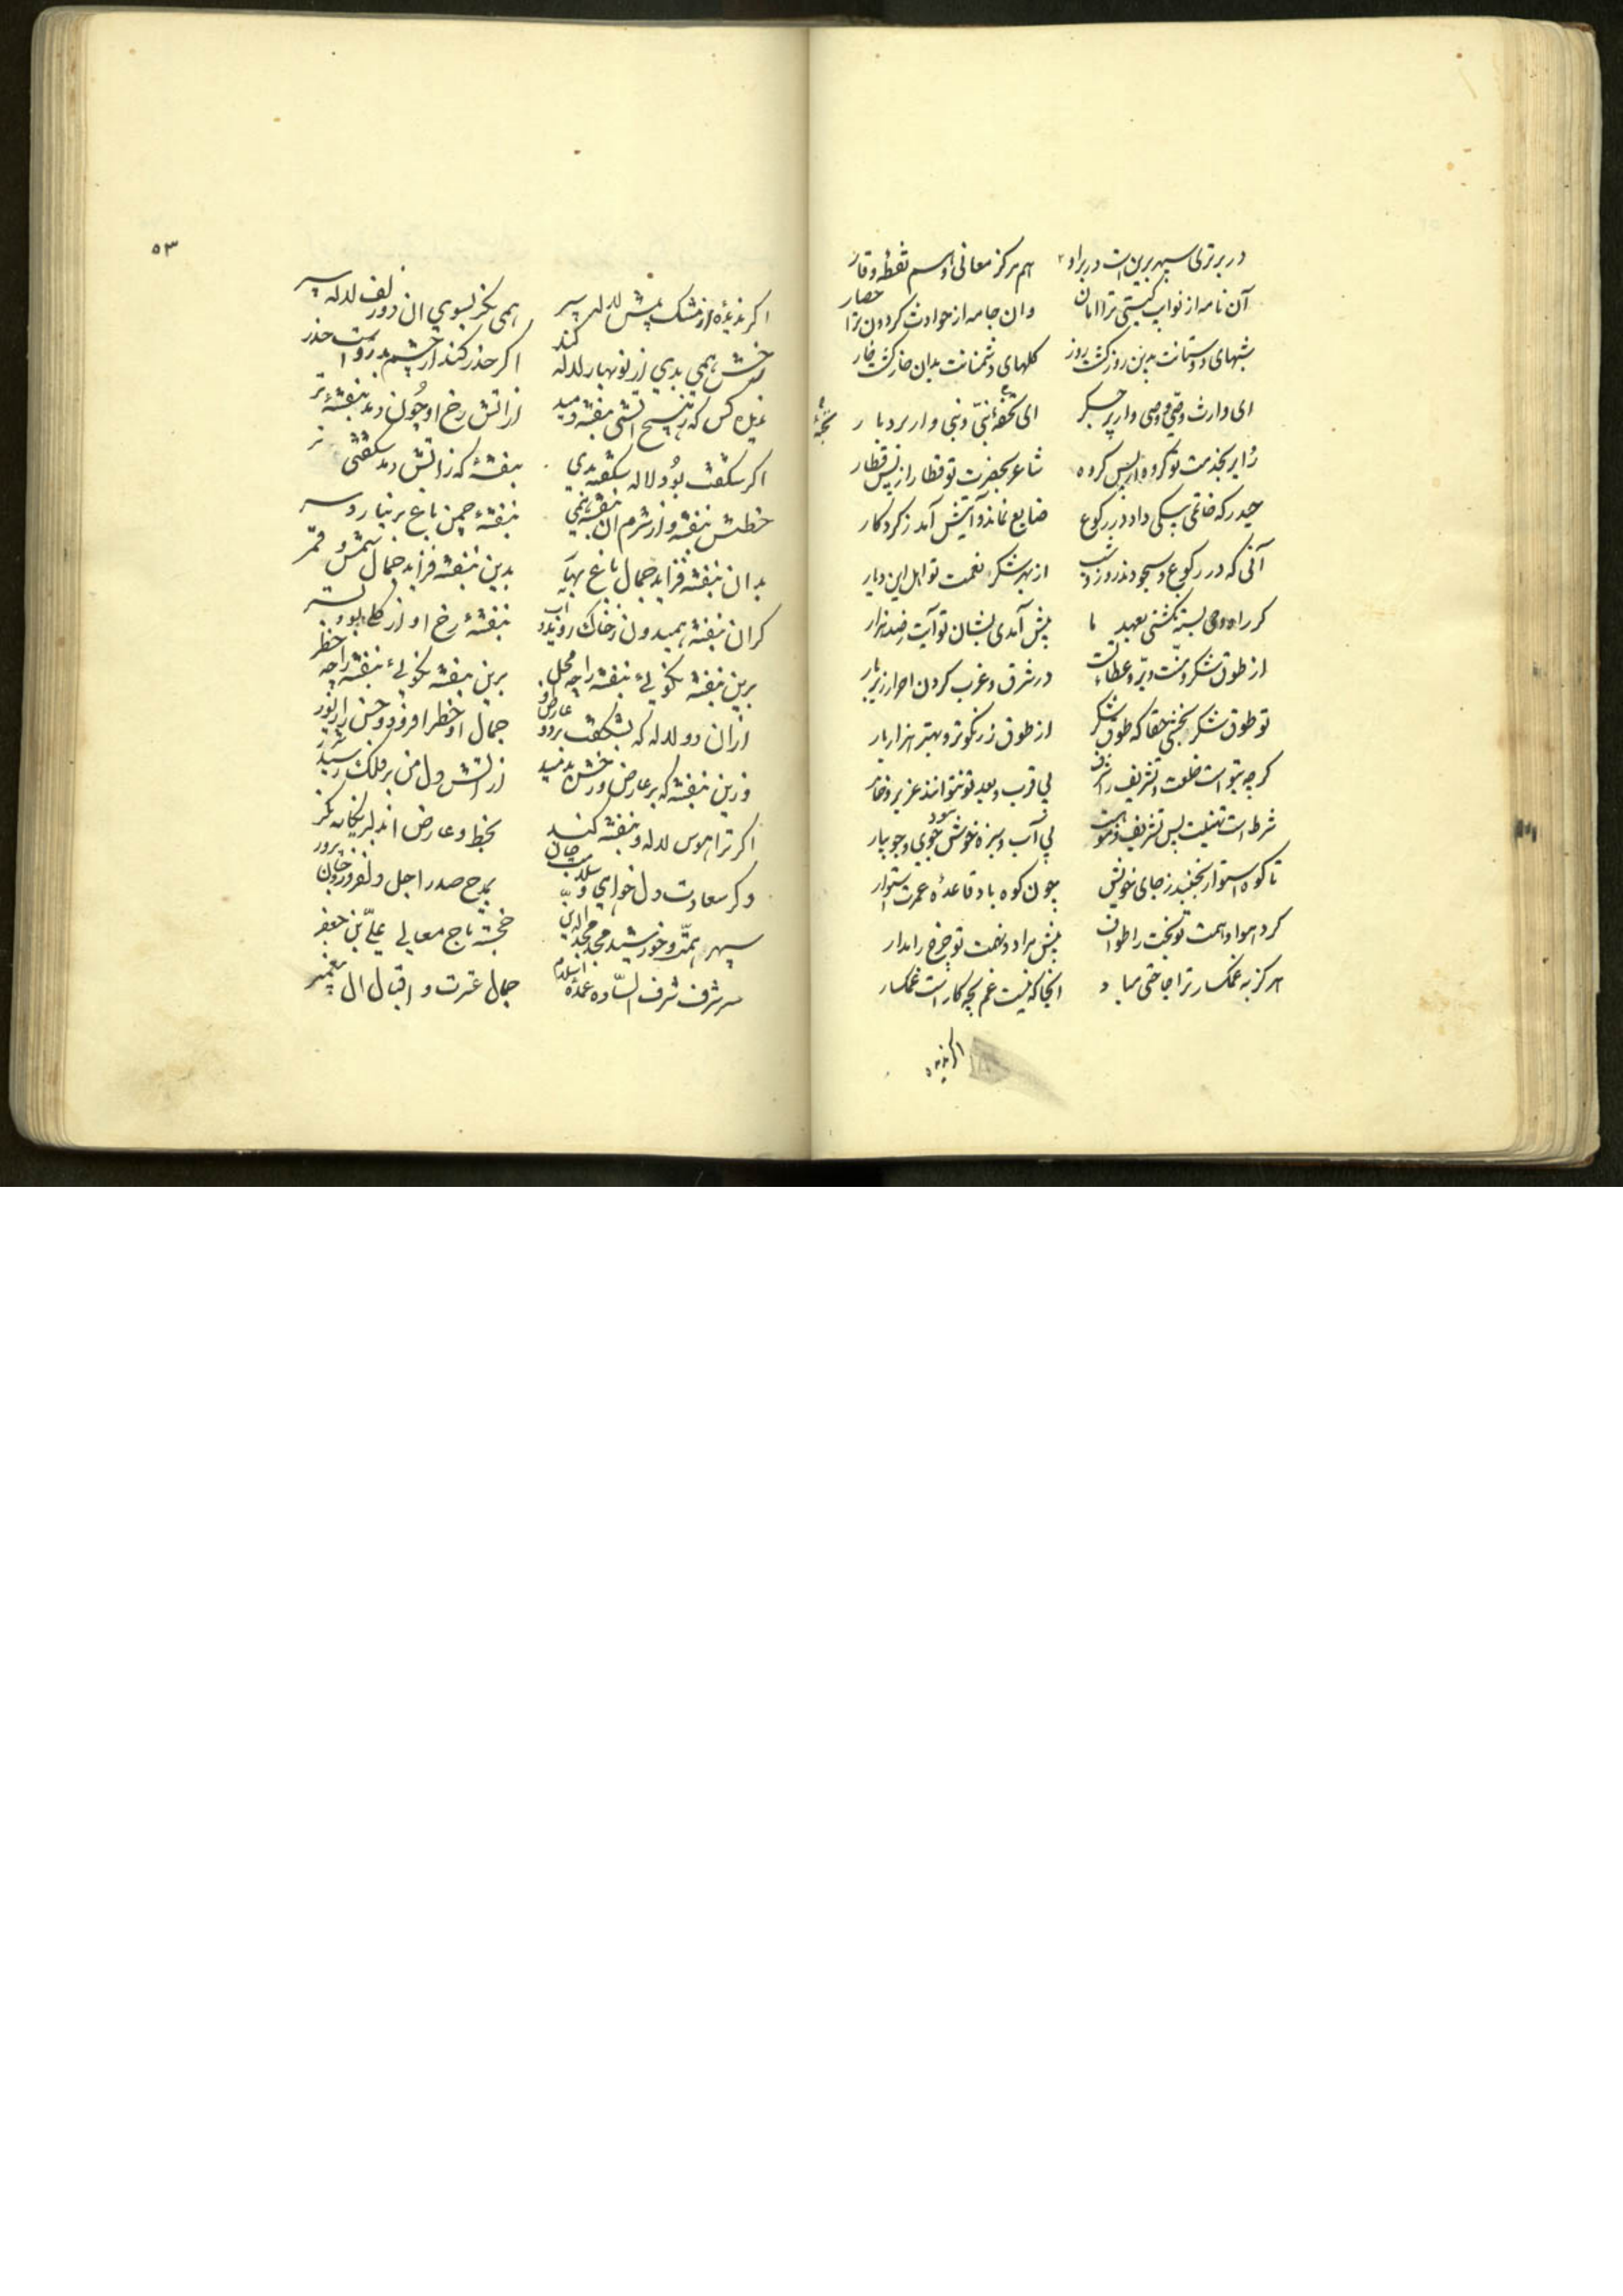 در برتری سپهر برین است در براو هم مرکز معانی و هم نقطه وقار
آن نامه از نوایب گیتی ترا امان وان جامه از حوادث گردون ترا حصار
شبهای دوستانت بدین روز گشت روز گلهای دشمنانت بدان خار گشت خار
ای وارث وصی و وصی وار پر جگر ای تحفهٔ نبی و نبی وار بردبار
زایر بخدمت تو گروه از پس گروه شاعر بحضرت تو قطار از پس قطار
حیدر که خاتمی بیکی داد در رکوع ضایع نماند و آیتش آمد ز کردگار
آنی که در رکوع و سجودند روز و شب از بهر شکر نعمت تو اهل این دیار
گر راه وحی بسته نگشتی بعهد ما پیش آمدی بشان تو آیت صد هزار
از طوق شکر و منت و بر و عطاء تست در شرق و غرب گردن احرار زیر بار
تو طوق شکر بخشی حقا که طوق شکر از طوق زر نکوتر و بهتر هزار بار
گرچه بتو است خلعت و تشریف را شرف بی قرب و بعد تو نتوانند عزیز و خار
شرط است تهنیت پس تشریف بی آب و سبزه خوش نبود جوی و جویبار
تا کوه استوار نجنبد ز جای خویش چون کوه باد قاعدهٔ عمرت استوار
گرد هوا و همت تو بخت را طواف پیش مراد و نعمت تو چرخ را مدار
هرگز به غمکسار ترا حاجتی مباد انجا که نیست غم بچه کار است غمکسار
اگر ندیدهٔ
۵۳
اگر ندیدهٔ از مشک پیش لاله سپر همی نگر بسوی ان دو زلف لاله سپر
رخش همی بدی از نوبهار لاله کند اگر حذر کند از چشم بد رواست حذر
ندیده کس که ز هیچ اتشی بنفشه دمید از اتش رخ او چون دمد بنفشهٔ تر
اگر شگفت بود لاله شگفته بدی بنفشهٔ که ز اتش دمد شگفتی تر
خطش بنفشه و از شرم ان بنفشه همی بنفشهٔ چمن باغ بر نیارد سر
بدان بنفشه فزاید جمال باغ بهار بدین بنفشه فزاید جمال شمس و قمر
گر ان بنفشه همیدون ز خاک روید و اب بنفشهٔ رخ او از گل بود بستر
برین بنفشه نگویی بنفشه را چه محل برین بنفشه نگویی بنفشه را چه خطر
از ان دو لاله که بشکفت بر دو عارض او جمال او خطر افزود و حسن را زیور
وزین بنفشه که بر عارض و رخش بدمید از اتش دل من بر فلک رسید شرر
اگر ترا هوس لاله و بنفشه کند بخط و عارض ان دلبر یگانه نگر
وگر سعادت دل خواهی و سلامت جان بمدح صدر اجل دلفروز و جان پرور
سپهر همت و خورشید مجد مجد الدین خجسته تاج معالی علی بن جعفر
سر شرف شرف الساده عمدة اسلام جمال عترت و اقبال ال پیغمبر